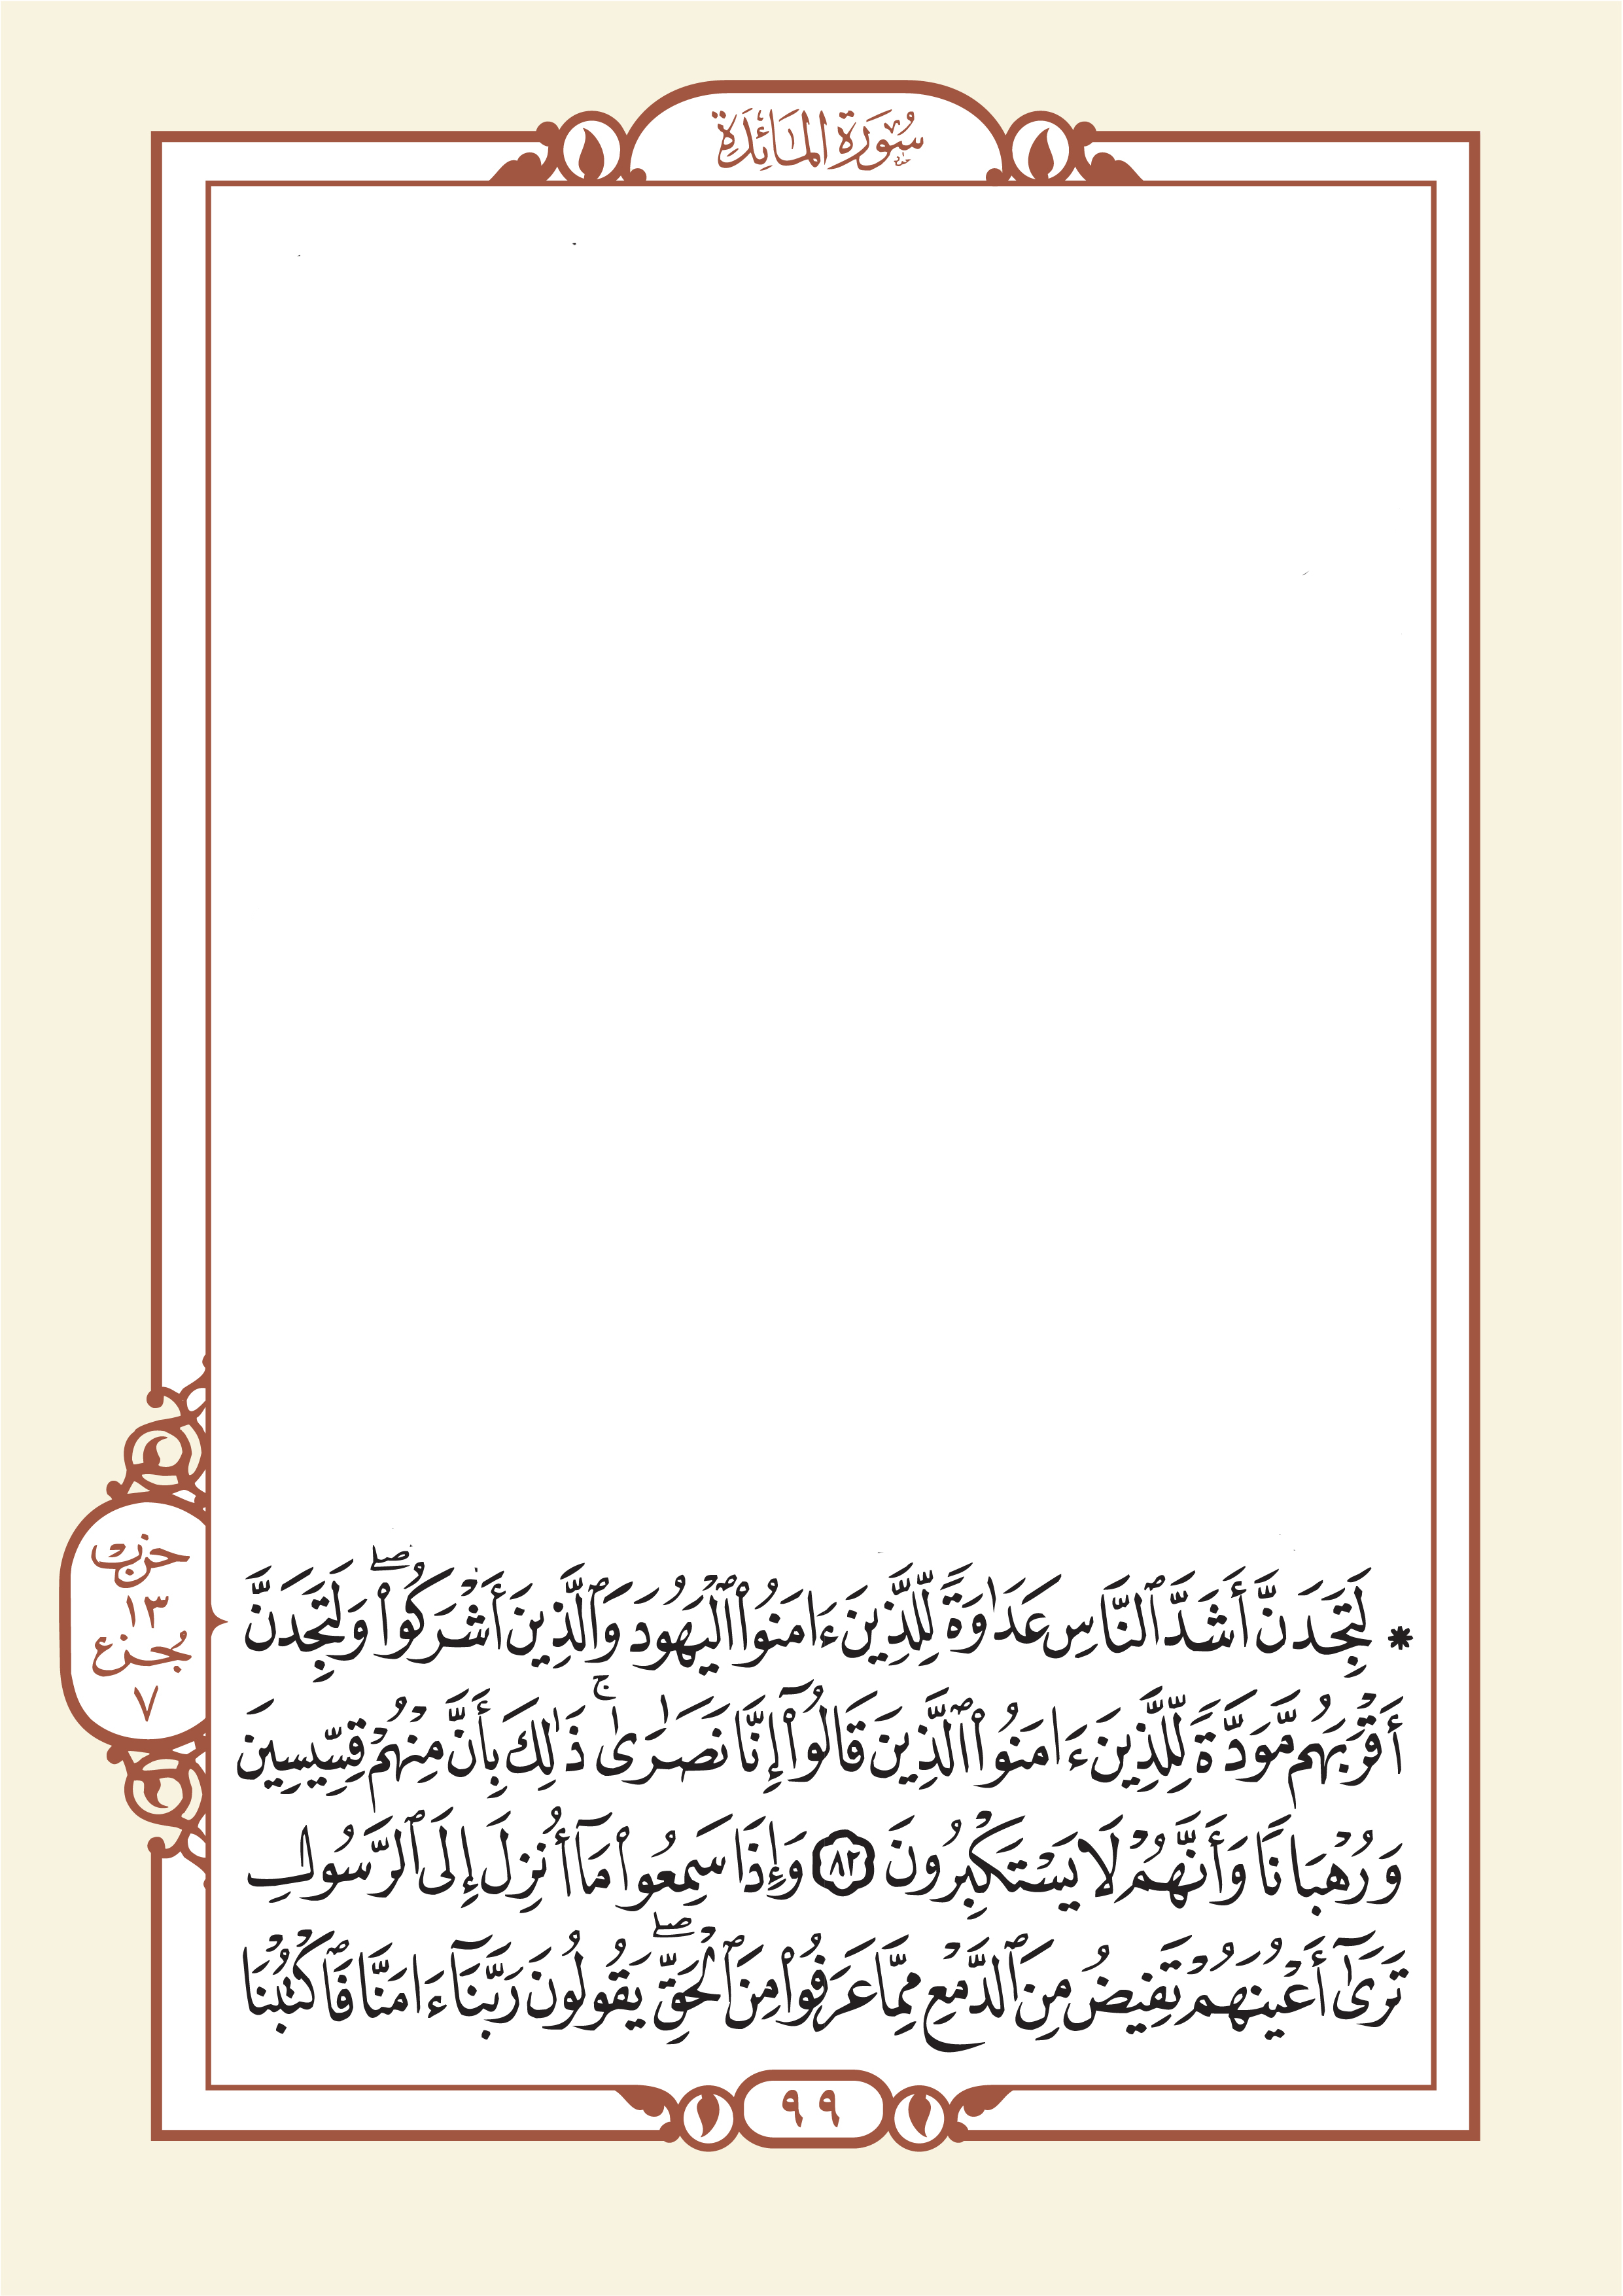 سُورَةُ المَائِدَةِ
* لَتَجِدَنَّ أَشَدَّ ٱلنَّاسِ عَدَٰوَةً لِّلَّذِينَ ءَامَنُوا۟ ٱلْيَهُودَ وَٱلَّذِينَ أَشْرَكُوا۟ ۖ وَلَتَجِدَنَّ
أَقْرَبَهُم مَّوَدَّةً لِّلَّذِينَ ءَامَنُوا۟ ٱلَّذِينَ قَالُوٓا۟ إِنَّا نَصَٰرَىٰ ۚ ذَٰلِكَ بِأَنَّ مِنْهُمْ قِسِّيسِينَ
وَرُهْبَانًا وَأَنَّهُمْ لَا يَسْتَكْبِرُونَ ٨٢ وَإِذَا سَمِعُوا۟ مَآ أُنزِلَ إِلَى ٱلرَّسُولِ
تَرَىٰٓ أَعْيُنَهُمْ تَفِيضُ مِنَ ٱلدَّمْعِ مِمَّا عَرَفُوا۟ مِنَ ٱلْحَقِّ ۖ يَقُولُونَ رَبَّنَآ ءَامَنَّا فَٱكْتُبْنَا
حزب
١٣
جزء
٧
٩٩